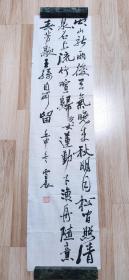 空山新雨後天氣晚來秋明月松間照清
泉石上流竹喧歸浣女蓮動下漁舟隨意
春芳歇王孫自可留 壬申冬